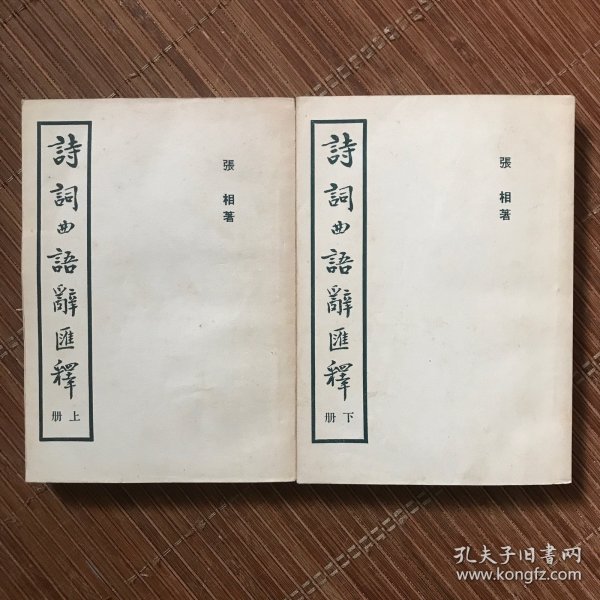 詩詞曲語辭匯釋
上册
張相著
詩詞曲語辭匯釋
下册
張相著
孔夫子旧书网
www.kongfz.com